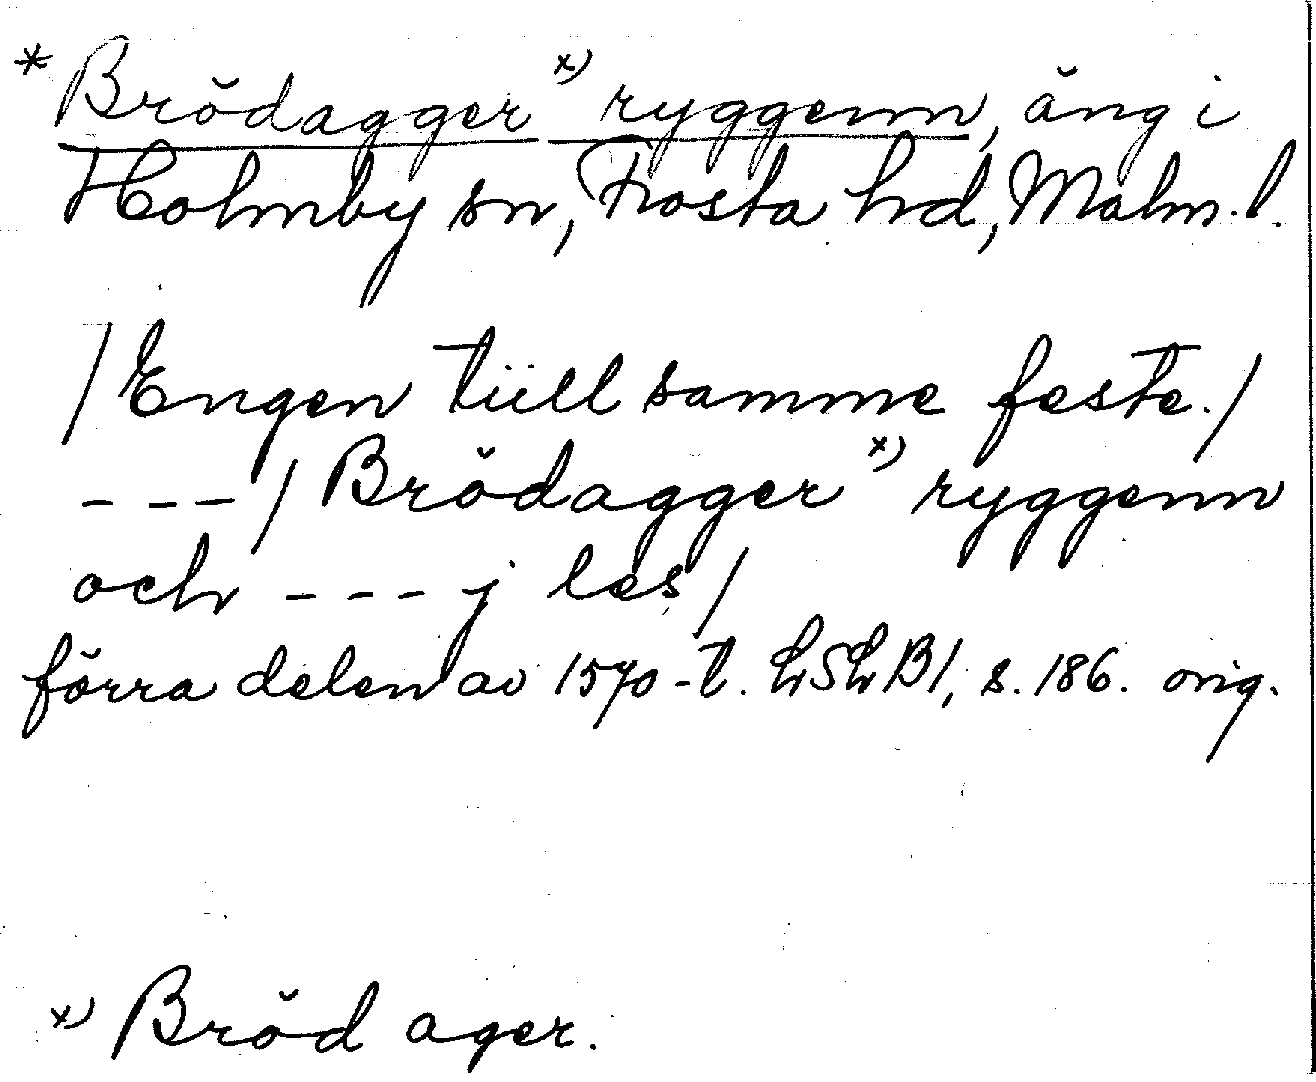 * Brödagger x) ryggenn, äng i
Holmby sn, Frosta hd, Malm. l.
/Engen tiill samme feste./
- - - / Brödagger x) ryggenn
och - - - j les/
förra delen av 1570-t. LSLB1, s. 186. orig.
x) Bröd ager.